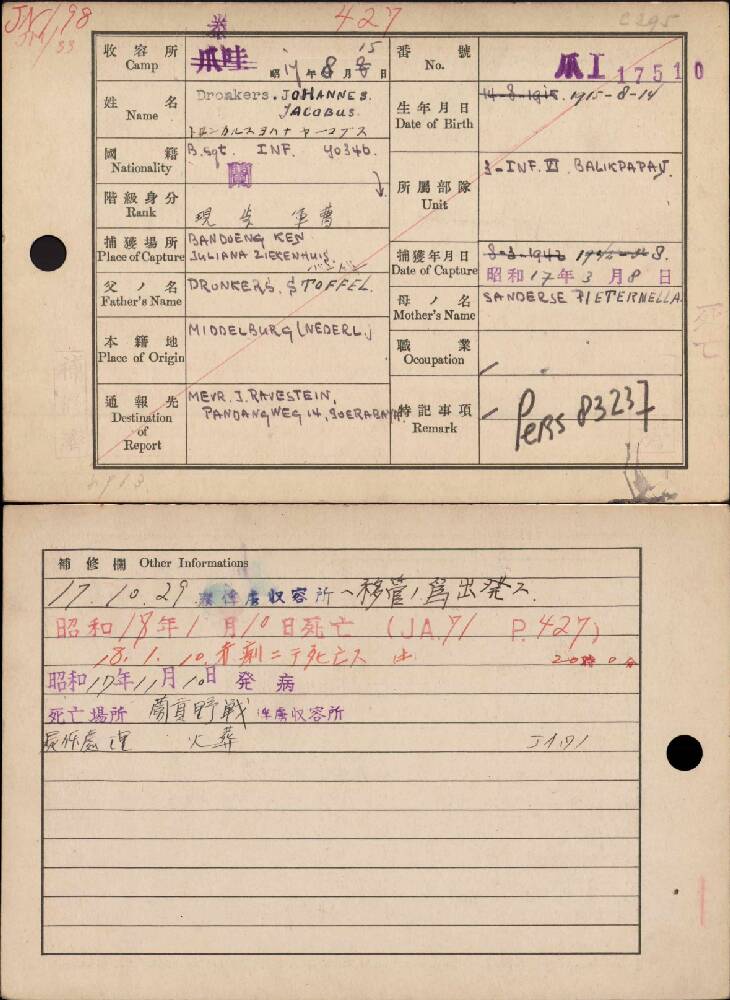 JN/98
427
C295
33
泰
收容所
Camp
爪哇
昭17年8月8日
15
番號
No.
爪I 17510
姓名
Name
Dronkers. JOHANNES.
JACOBUS.
生年月日
Date of Birth
14-8-1915. 1915-8-14
國籍
Nationality
B.sgt. INF. 40346.
蘭
所屬部隊
Unit
3-INF. VI BALIKPAPAN.
階級身分
Rank
現 軍曹
捕獲場所
Place of Capture
BANDOENG KEN
JULIANA ZIEKENHUIS.
捕獲年月日
Date of Capture
8-3-1942
昭和17年3月8日
父ノ名
Father's Name
DRONKERS, STOFFEL.
母ノ名
Mother's Name
SANDERSE PIETERNELLA.
本籍地
Place of Origin
MIDDELBURG (NEDERL.)
職業
Occupation
通報先
Destination
of
Report
MEVR. J. RAVESTEIN,
PANDANGWEG 14, SOERABAYA.
特記事項
Remark
Pers 83237
死亡
補修欄 Other Informations
17.10.29. 泰俘虜収容所ヘ移管ノ爲出発ス.
昭和18年1月10日死亡 (JA.71 P.427)
18.1.10. ニテ死亡ス
20時0分
昭和17年11月10日発病
死亡場所 野戦俘虜収容所
屍体處理 火葬
JA71